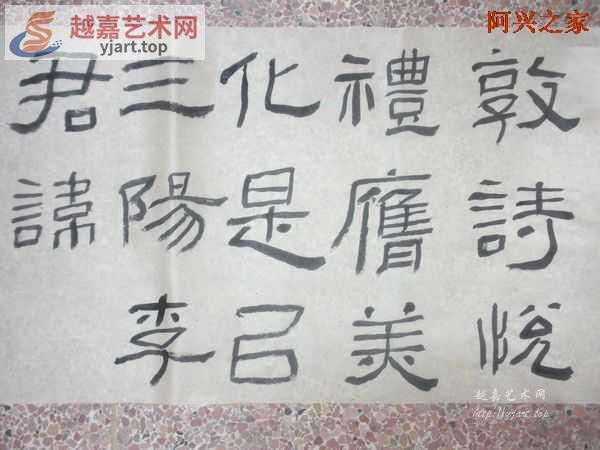 越嘉艺术网
yjart.top
阿兴之家
敦詩悅
禮膺美
化是㠯
三陽李
君諱
越嘉艺术网
http://yjart.top